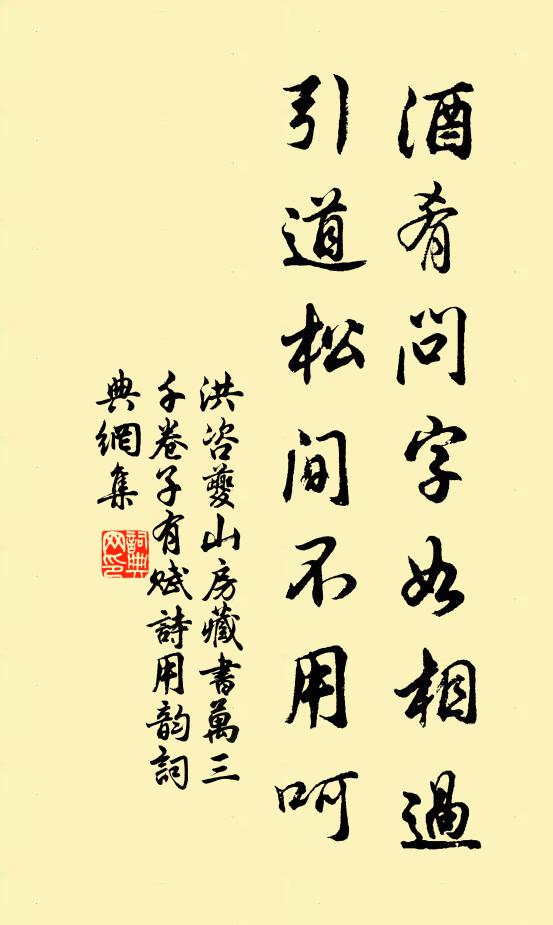 酒肴問字如相過
引道松間不用呵
洪咨夔山房藏書萬三
千卷子有赋詩用韵詞
典網集
詞典
网印